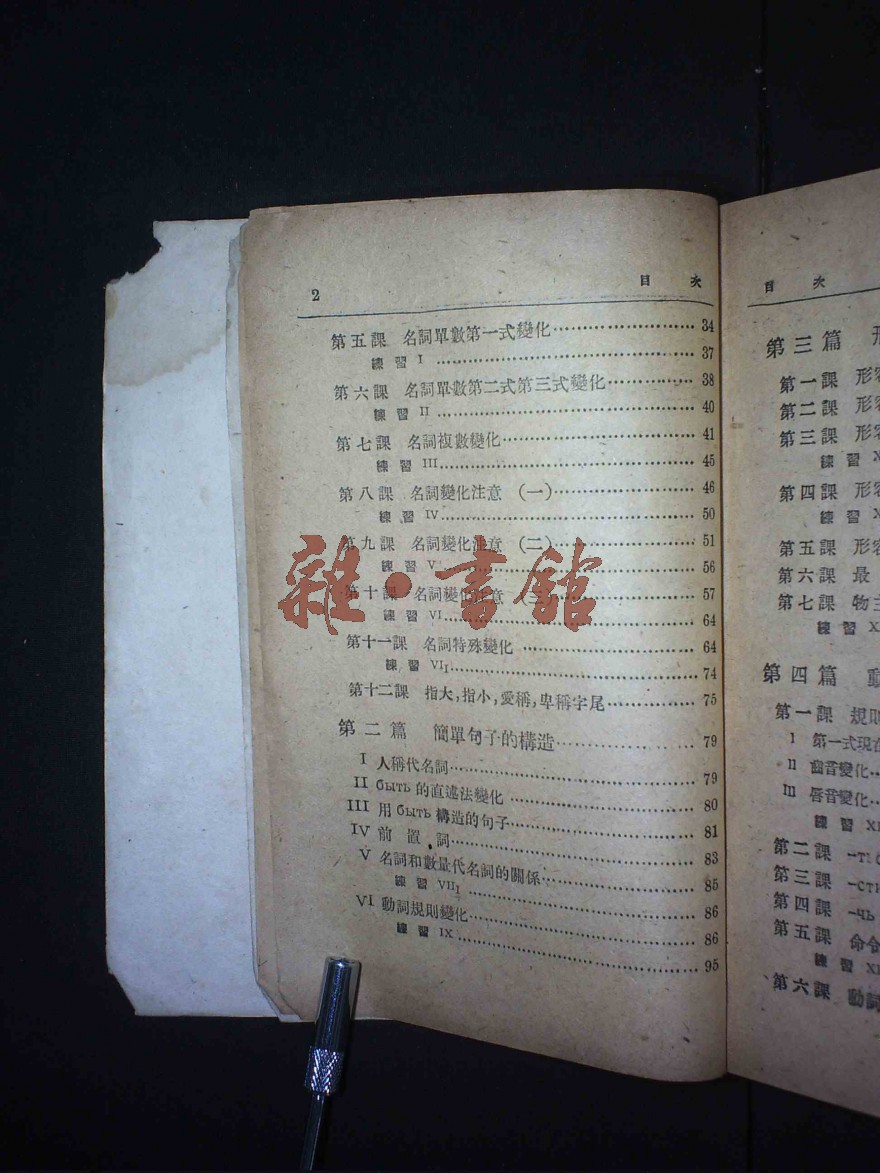 2 目次
第五課 名詞單數第一式變化 34
練習 I 37
第六課 名詞單數第二式第三式變化 38
練習 II 40
第七課 名詞複數變化 41
練習 III 45
第八課 名詞變化注意 (一) 46
練習 IV 50
第九課 名詞變化注意 (二) 51
練習 V 56
第十課 名詞變化注意 (三) 57
練習 VI 64
第十一課 名詞特殊變化 64
練習 VII 74
第十二課 指大,指小,愛稱,卑稱字尾 75
第二篇 簡單句子的構造 79
I 人稱代名詞 79
II быть 的直述法變化 80
III 用 быть 構造的句子 81
IV 前置詞 83
V 名詞和數量代名詞的關係 85
練習 VIII 86
VI 動詞規則變化 86
練習 IX 95
雜·書館
目次
第三篇
第一課 形
第二課 形
第三課 形
練習
第四課 形
練習
第五課 形
第六課 最
第七課 物主
練習
第四篇 動
第一課 規則
I 第一式現在
II 齒音變化
III 唇音變化
練習
第二課
第三課 -сти
第四課 -чь
第五課 命令
練習
第六課 動詞